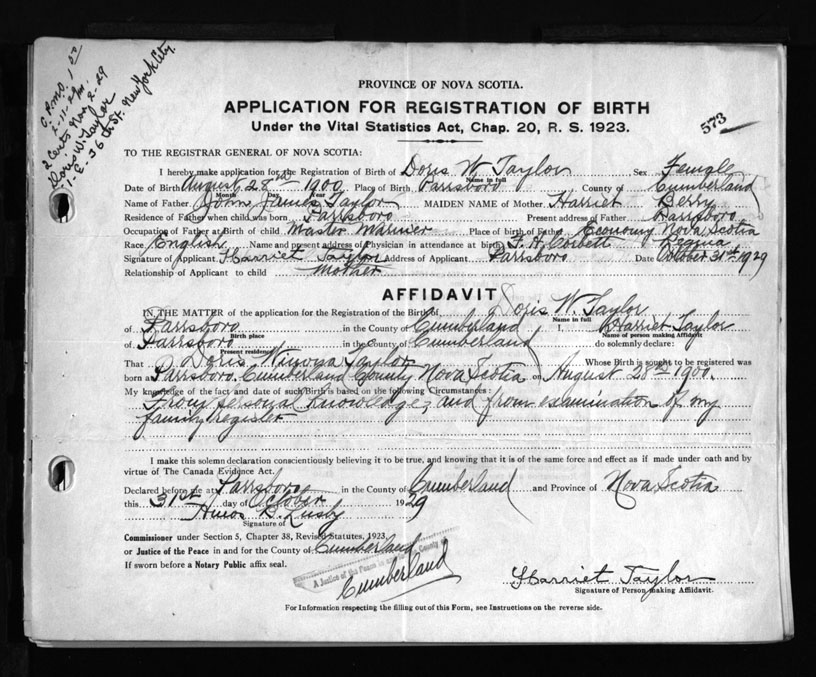 C. P.M.O. 1 00
2-11-29.
2 Certs Nov 2-29
Doris W. Taylor
11-E-36th St. New York City.
PROVINCE OF NOVA SCOTIA.
APPLICATION FOR REGISTRATION OF BIRTH
573
Under the Vital Statistics Act, Chap. 20, R. S. 1923.
TO THE REGISTRAR GENERAL OF NOVA SCOTIA:
I hereby make application for the Registration of Birth of Doris W. Taylor Sex Female
Name in full
Date of Birth August 28th 1900 Place of Birth Parrsboro County of Cumberland
Month Day Year
Name of Father John James Taylor MAIDEN NAME of Mother Harriet Berry
Residence of Father when child was born Parrsboro Present address of Father Parrsboro
Occupation of Father at Birth of child Master Mariner Place of birth of Father Economy Nova Scotia
Race English Name and present address of Physician in attendance at birth F. A. Corbett Regina
Signature of Applicant Harriet Taylor Address of Applicant Parrsboro Date October 31st 1929
Relationship of Applicant to child Mother
AFFIDAVIT
IN THE MATTER of the application for the Registration of the Birth of Doris W. Taylor
Name in full
of Parrsboro in the County of Cumberland I, Harriet Taylor
Birth place Name of person making Affidavit
of Parrsboro in the County of Cumberland do solemnly declare:
Present residence
That Doris Winona Taylor Whose Birth is sought to be registered was
born at Parrsboro Cumberland County Nova Scotia on August 28th 1900.
My knowledge of the fact and date of such Birth is based on the following Circumstances:
From personal knowledge, and from examination of my
family register
I make this solemn declaration conscientiously believing it to be true, and knowing that it is of the same force and effect as if made under oath and by
virtue of The Canada Evidence Act.
Declared before me at Parrsboro in the County of Cumberland and Province of Nova Scotia
this 31st day of October 1929
Amos B. Lusby
Signature of
Commissioner under Section 5, Chapter 38, Revised Statutes, 1923.
or Justice of the Peace in and for the County of Cumberland
If sworn before a Notary Public affix seal.
A Justice of the Peace in and for the County of
Cumberland
Harriet Taylor
Signature of Person making Affidavit.
For Information respecting the filling out of this Form, see Instructions on the reverse side.